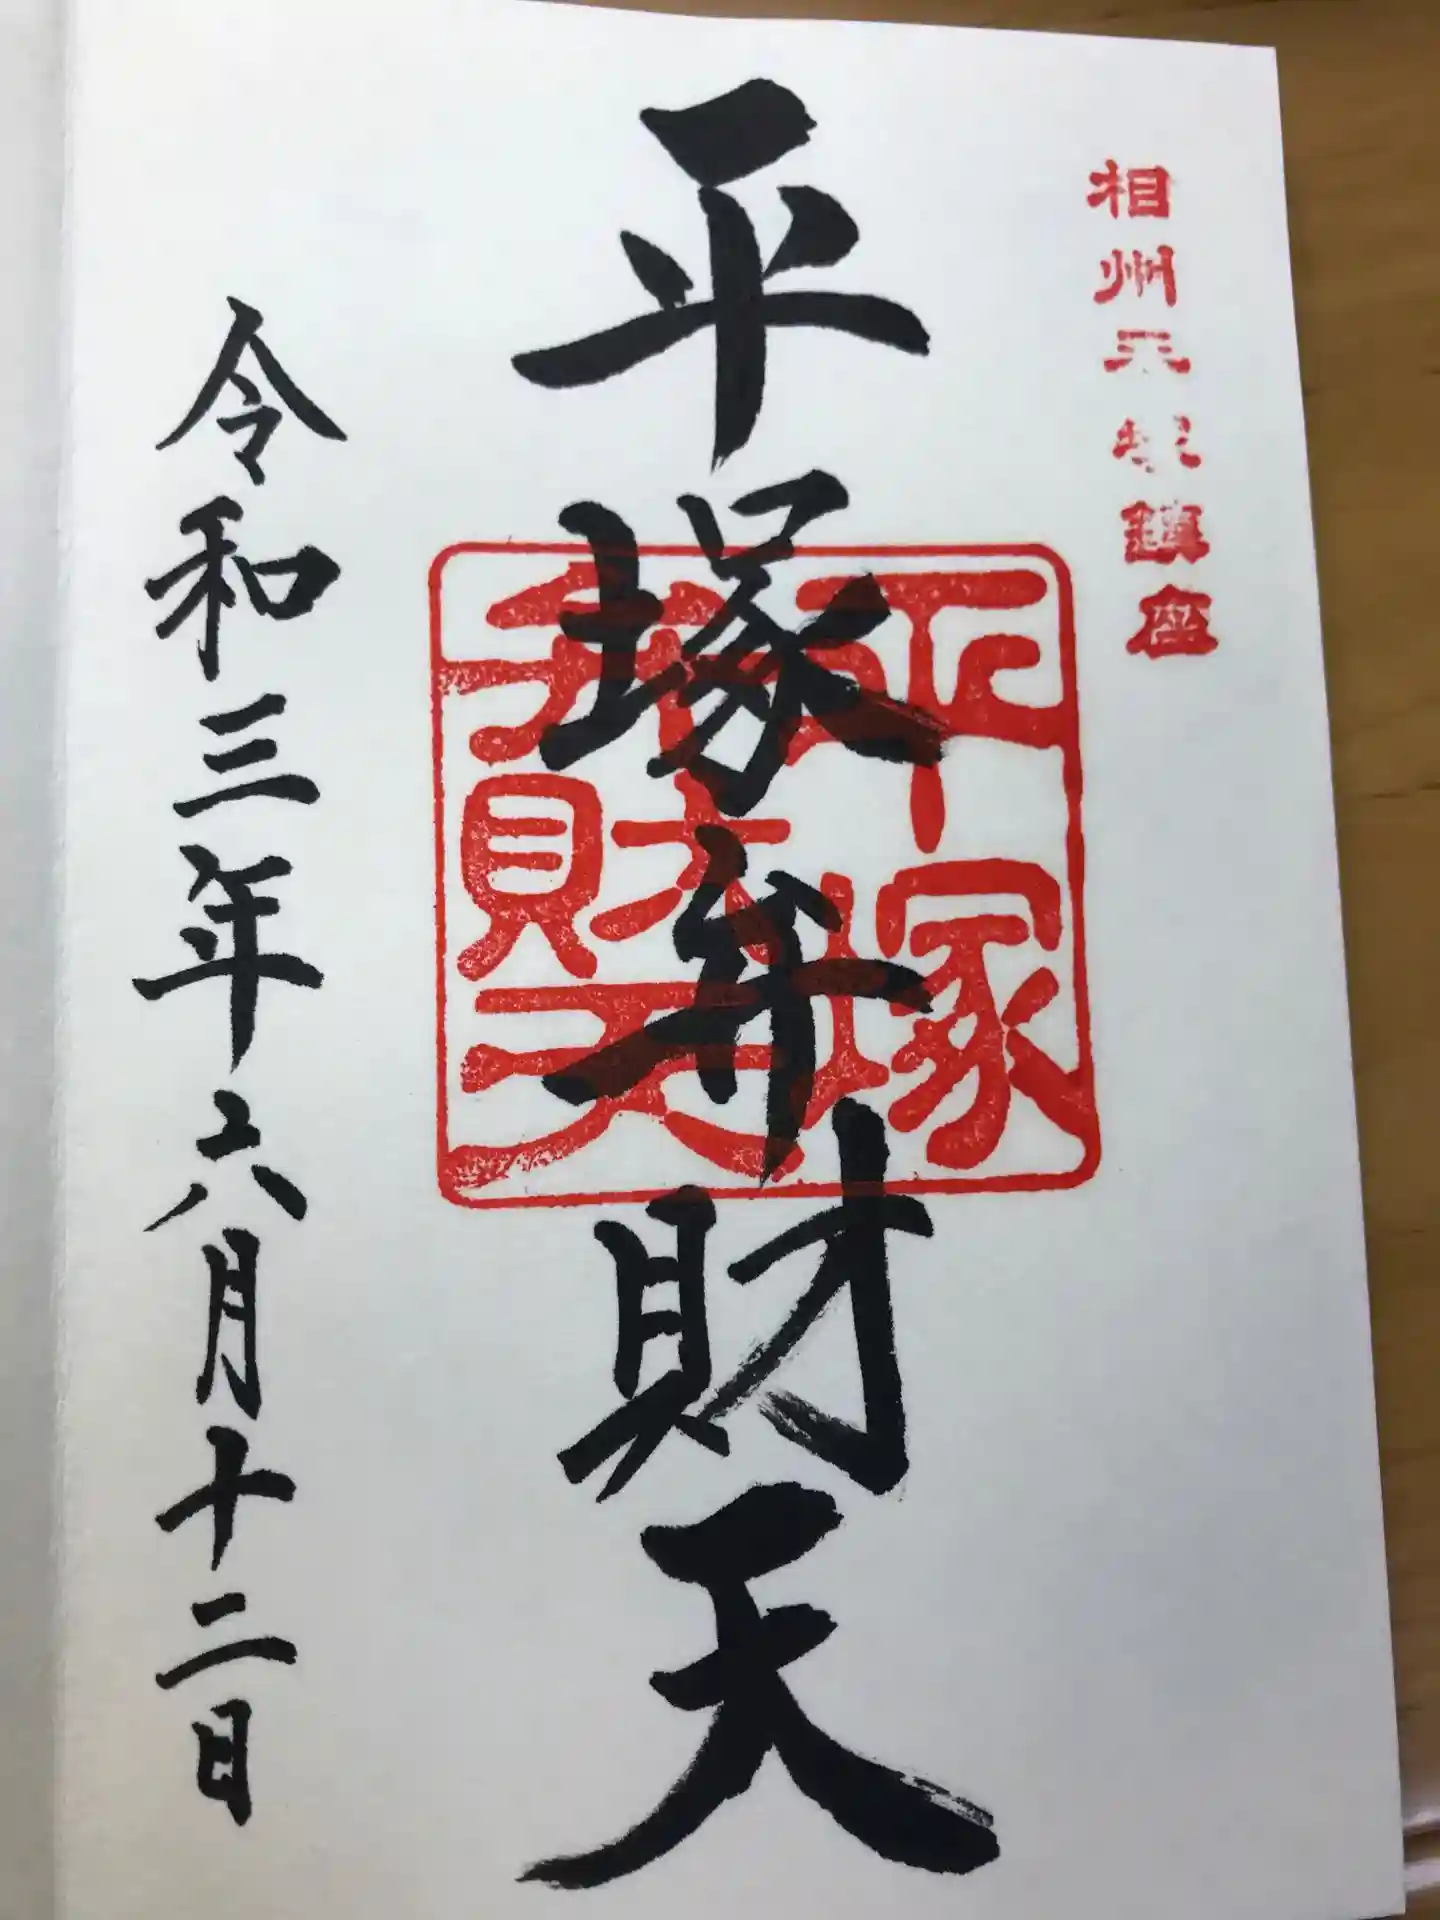 相州平塚鎮座
平塚弁財天
平塚
財天
令和三年六月十二日